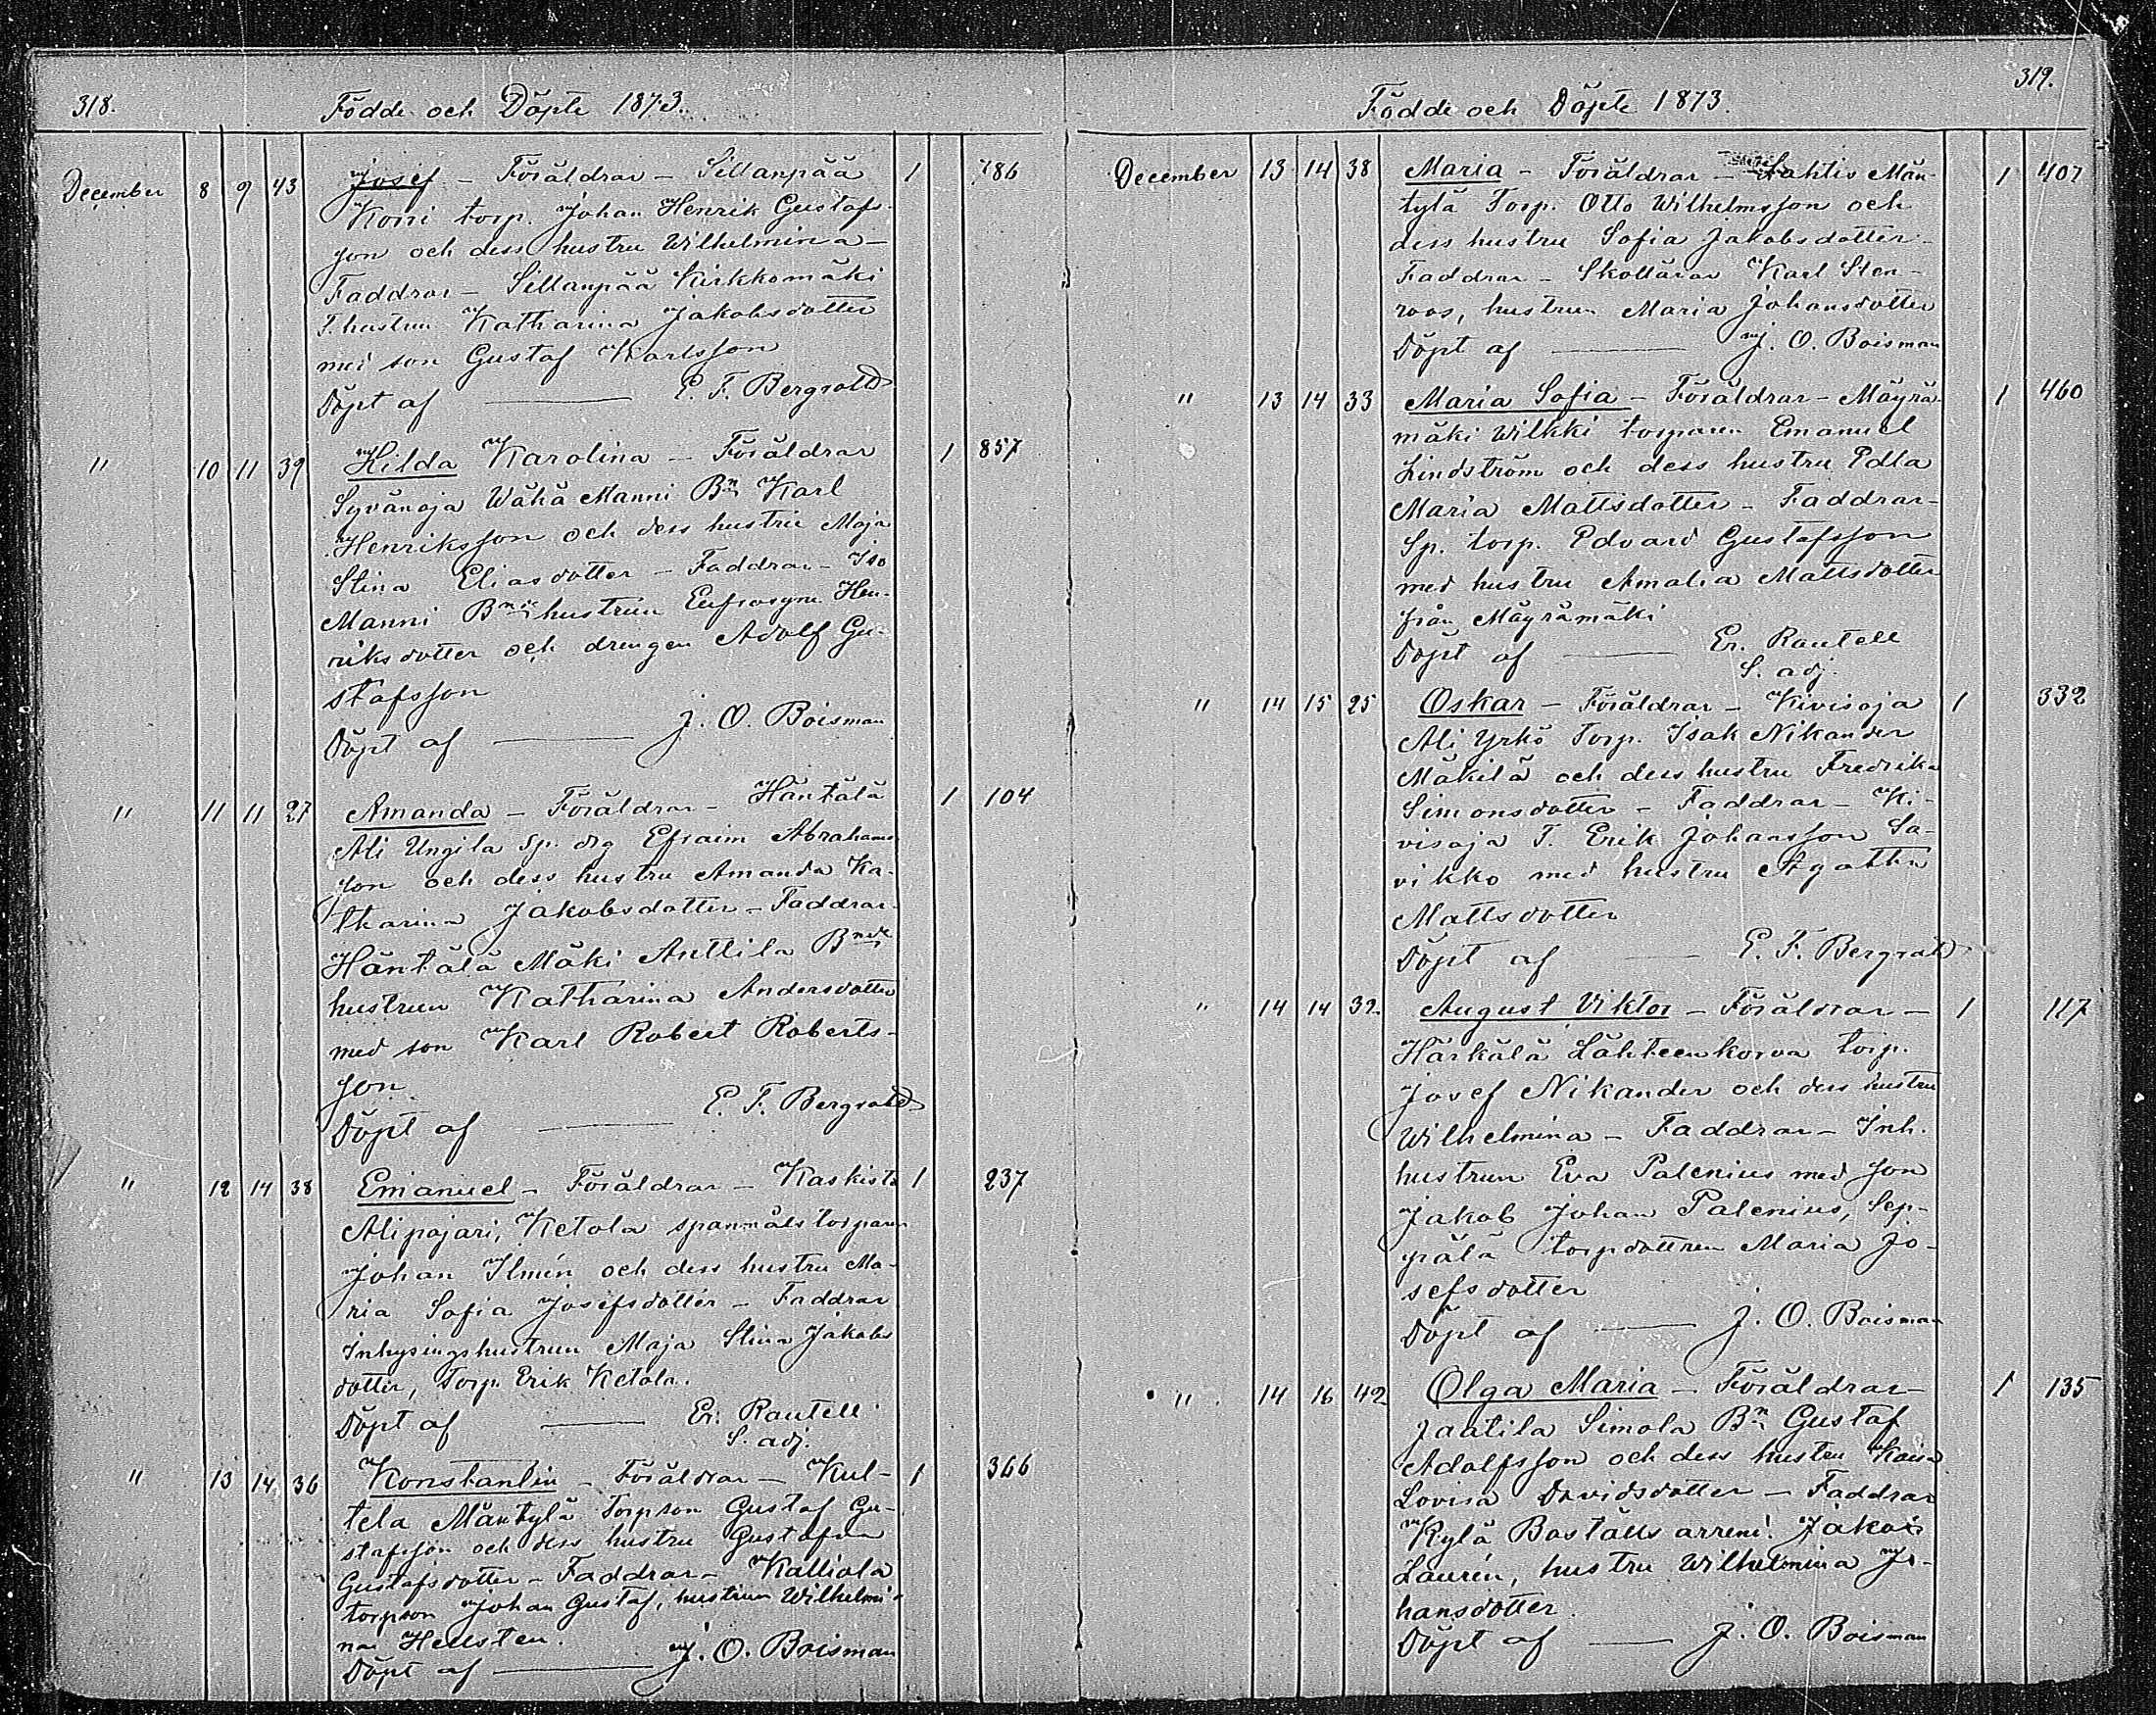 318.
Födde och Döpte 1873.
December 8 9 43 Josef — Föräldrar — Sillanpää 1 786
Korri torp. Johan Henrik Gustafs-
son och dess hustru Wilhelmina —
Faddrar — Sillanpää Kirkkomäki
T. hustrun Katharina Jakobsdotter
med son Gustaf Karlsson
Döpt af —— E. F. Bergroth
" 10 11 39 Hilda Karolina — Föräldrar 1 857
Syvänoja Wähä Manni Bn Karl
Henriksson och dess hustru Maja
Stina Eliasdotter — Faddrar — Iso
Manni Bnde hustrun Eufrosyne Hen-
riksdotter och drengen Adolf Gu-
stafsson
Döpt af —— J. O. Boisman
" 11 11 27 Amanda — Föräldrar — Häntälä 1 104
Ali Ungila Sp. drg Efraim Abrahams-
son och dess hustru Amanda Ka-
tharina Jakobsdotter — Faddrar —
Häntälä Mäki Anttila Bnde
hustrun Katharina Andersdotter
med son Karl Robert Roberts-
son
Döpt af —— E. F. Bergroth
" 12 14 38 Emanuel — Föräldrar — Kaskisto 1 237
Alipajari, Ketola spanmåls torparen
Johan Ilmén och dess hustru Ma-
ria Sofia Josefsdotter — Faddrar
Inhysingshustrun Maja Stina Jakobs
dotter, Torp. Erik Ketola.
Döpt af —— Er. Rautell
S. adj.
" 13 14 36 Konstantin — Föräldrar — Kul- 1 366
tela Mäntylä Torpson Gustaf Gu-
stafsson och dess hustru Gustafva
Gustafsdotter — Faddrar — Kalliola
torpson Johan Gustaf, hustrun Wilhelmi-
na Hellsten.
Döpt af —— J. O. Boisman
319.
Födde och Döpte 1873.
December 13 14 38 Maria — Föräldrar — Lahtis Män- 1 407
tylä Torp. Otto Wilhelmsson och
dess hustru Sofia Jakobsdotter —
Faddrar — Skollärar Karl Sten-
roos, hustrun Maria Johansdotter
Döpt af —— J. O. Boisman
" 13 14 33 Maria Sofia — Föräldrar — Mäyrä- 1 460
mäki Wilkki torparen Emanuel
Lindström och dess hustru Edla
Maria Mattsdotter — Faddrar —
Sp. torp. Edvard Gustafsson
med hustru Amalia Mattsdotter
från Mäyrämäki
Döpt af —— Er. Rautell
S. adj.
" 14 15 25 Oskar — Föräldrar — Kivisoja 1 332
Ali Yrkö Torp. Isak Nikander
Mäkilä och dess hustru Fredrika
Simonsdotter — Faddrar — Ki-
visoja T. Erik Johansson Sa-
vikko med hustru Agatha
Mattsdotter
Döpt af —— E. F. Bergroth
" 14 14 32. August Viktor — Föräldrar — 1 117
Härkälä Lähteenkorva torp.
Josef Nikander och dess hustru
Wilhelmina — Faddrar — Inh.
hustrun Eva Palenius med son
Jakob Johan Palenius, Sep-
pälä torpdottren Maria Jo-
sefsdotter
Döpt af —— J. O. Boisman
" 14 16 42 Olga Maria — Föräldrar — 1 135
Jaatila Simola Bn Gustaf
Adolfsson och dess hustru Kaisa
Lovisa Davidsdotter — Faddrar
Kylä Boställs arrend. Jakob
Laurén, hustru Wilhelmina Jo-
hansdotter.
Döpt af —— J. O. Boisman